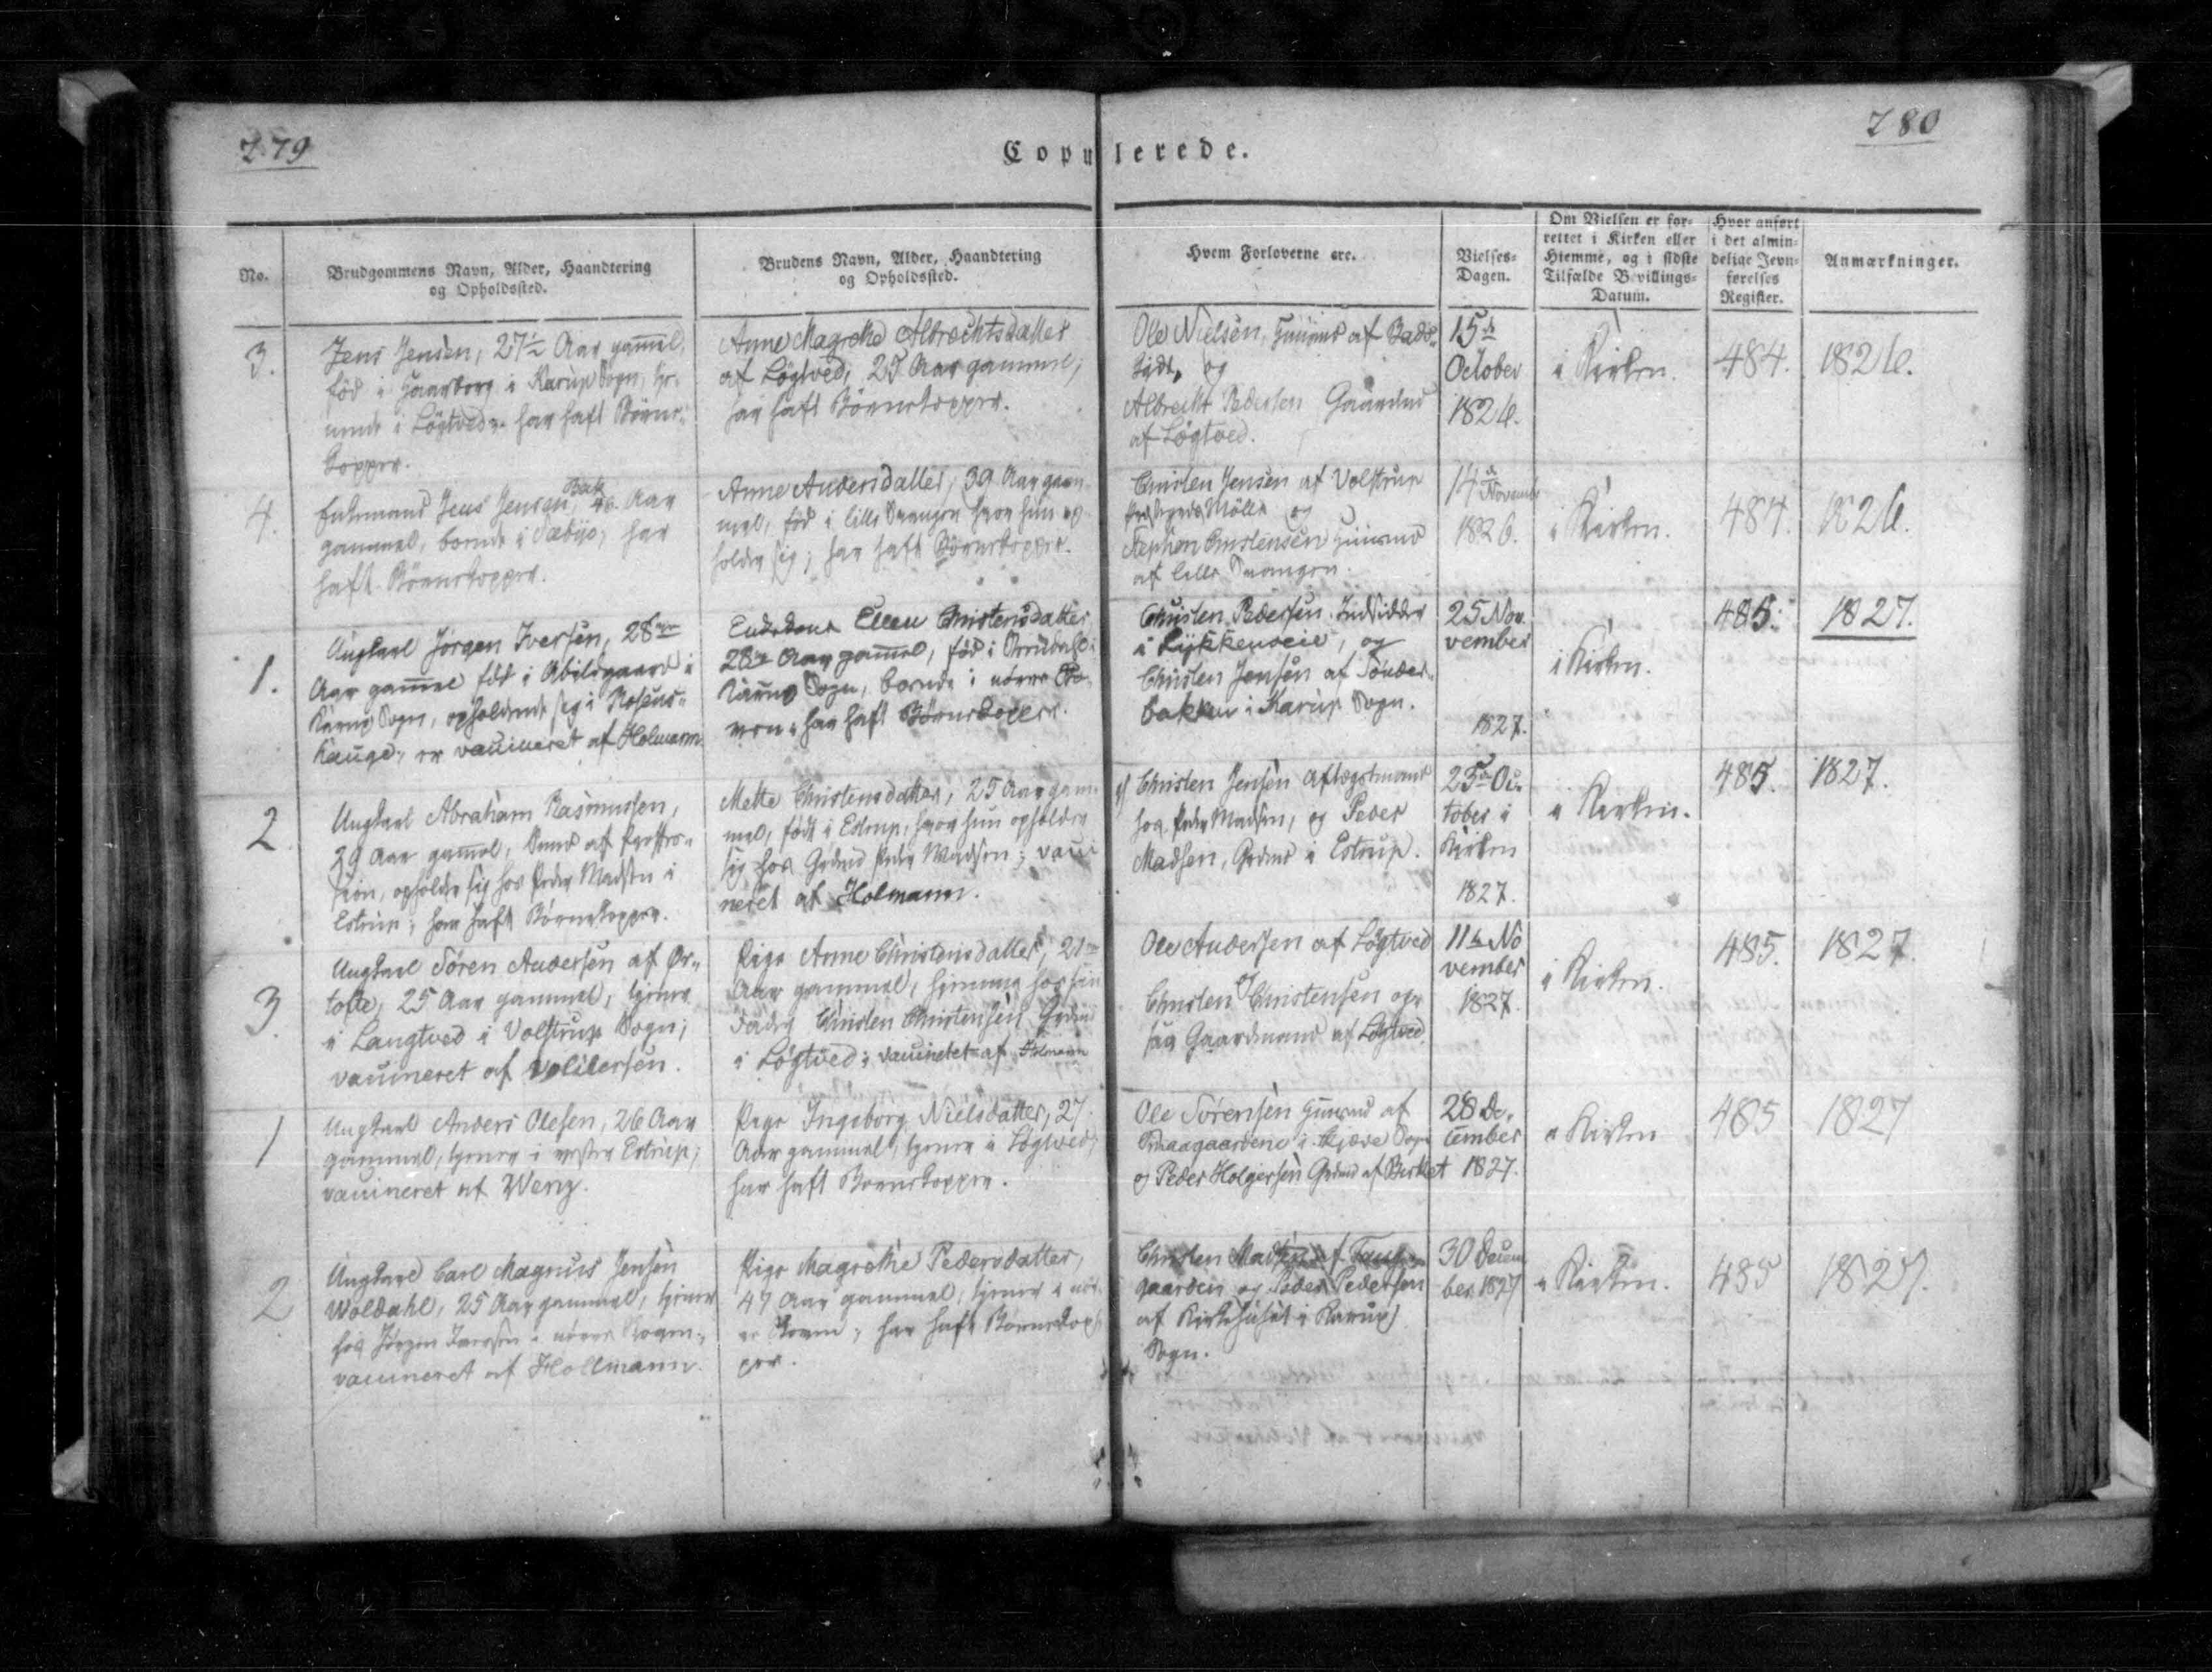 279
780
Copulerede.
No.
Brudgommens Navn, Alder, Haandtering
og Opholdssted.
Brudens Navn, Alder, Haandtering
og Opholdssted.
Hvem Forloverne ere.
Vielses-
Dagen.
Om Vielsen er for-
rettet i Kirken eller
Hiemme, og i sidste
Tilfælde Bevillings-
Datum.
Hvor anført
i det almin-
delige Jevn-
førelses
Register.
Anmærkninger.
3.
Jens Jensen, 27½ Aar gam̅el,
fød i i Karup Sogn,
i Løgtved har haft Børne-
kopper.
Anne Magrethe Albrechtsdatter
af Løgtved, 25 Aar gammel,
har haft Børnekopper.
Ole Nielsen, Huusmd af
og
Albrecht Pedersen Gaardmd
af Løgtved.
15de
October
1826.
i Kirken.
484.
1826.
4.
Enkemand Jens Jensen Bak, 46 Aar
gammel, boende i Sæbye, har
haft Børnekopper.
Anne Andersdatter, 39 Aar gam-
mel, fød i lille hvor hun op-
holder sig; har haft Børnekopper.
Christen Jensen af Volstrup
Mølle og
Stephen Christensen Huusmd
af lille
14de
Novemb
1826.
i Kirken.
484.
1826.
1.
Ungkarl Jørgen Iversen, 28
Aar gammel fød i Abildgaard i
Karup Sogn, opholdende sig i
er vaccineret af Holmann
Ellen Christensdatter
28 Aar gam̅el, fød i i
Karup Sogn, boende i nørre
har haft Børnekopper.
Christen Pedersen Indsidder
i Lykkenseie, og
Christen Jensen af Sønder-
bakken i Karup Sogn.
25 No-
vember
1827.
i Kirken.
485.
1827.
2
Ungkarl Abraham Rasmussen,
29 Aar gam̅el,
opholder sig hos Peder Madsen i
Estrup; har haft Børnekopper.
Mette Christensdatter, 25 Aar gam-
mel, født i Estrup, hvor hun opholder
sig hos Grdmd Peder Madsen; vacci-
neret af Holmann.
Christen Jensen Aftægtsmand
hos Peder Madsen, og Peder
Madsen, Grdmd i Estrup.
23de Oc-
tober i
Kirken
1827.
i Kirken.
485.
1827.
3.
Ungkarl Søren Andersen af Ør-
tofte, 25 Aar gammel, tjener
i Langtved i Volstrup Sogn;
vaccineret af Volkersen.
Pige Anne Christensdatter, 21
Aar gammel, hjemme hos sin
Fader Christen Christensen Grdmd
i Løgtved; vaccineret af Holmann
Ole Andersen af Løgtved
og
Christen Christensen og-
saa Gaardmand af Løgtved.
11te No
vember
1827.
i Kirken.
485.
1827.
1
Ungkarl Anders Olesen, 26 Aar
gammel, tjener i vester Estrup,
vaccineret af Wenz.
Pige Ingeborg Nielsdatter, 27
Aar gammel, tjener i Løgtved,
har haft Børnekopper.
Ole Sørensen Huusmd af
Smaagaardene i Skjæve Sogn
og Peder Holgersen Grdmd af Birket
28 De-
cember
1827.
i Kirken
485
1827
2
Ungkarl Carl Magnus Jensen
Woldahl, 25 Aar gammel, tjener
hos Jørgen Iversen i nørre
vaccineret af Hollmann.
Pige Magrethe Pedersdatter,
47 Aar gammel, tjener i nør-
re har haft Børnekop-
per.
Christen Madsen af
gaarden og Peder Pedersen
af Kirkehuset i Karup
Sogn.
30 Decem
ber 1827
i Kirken.
485
1827.